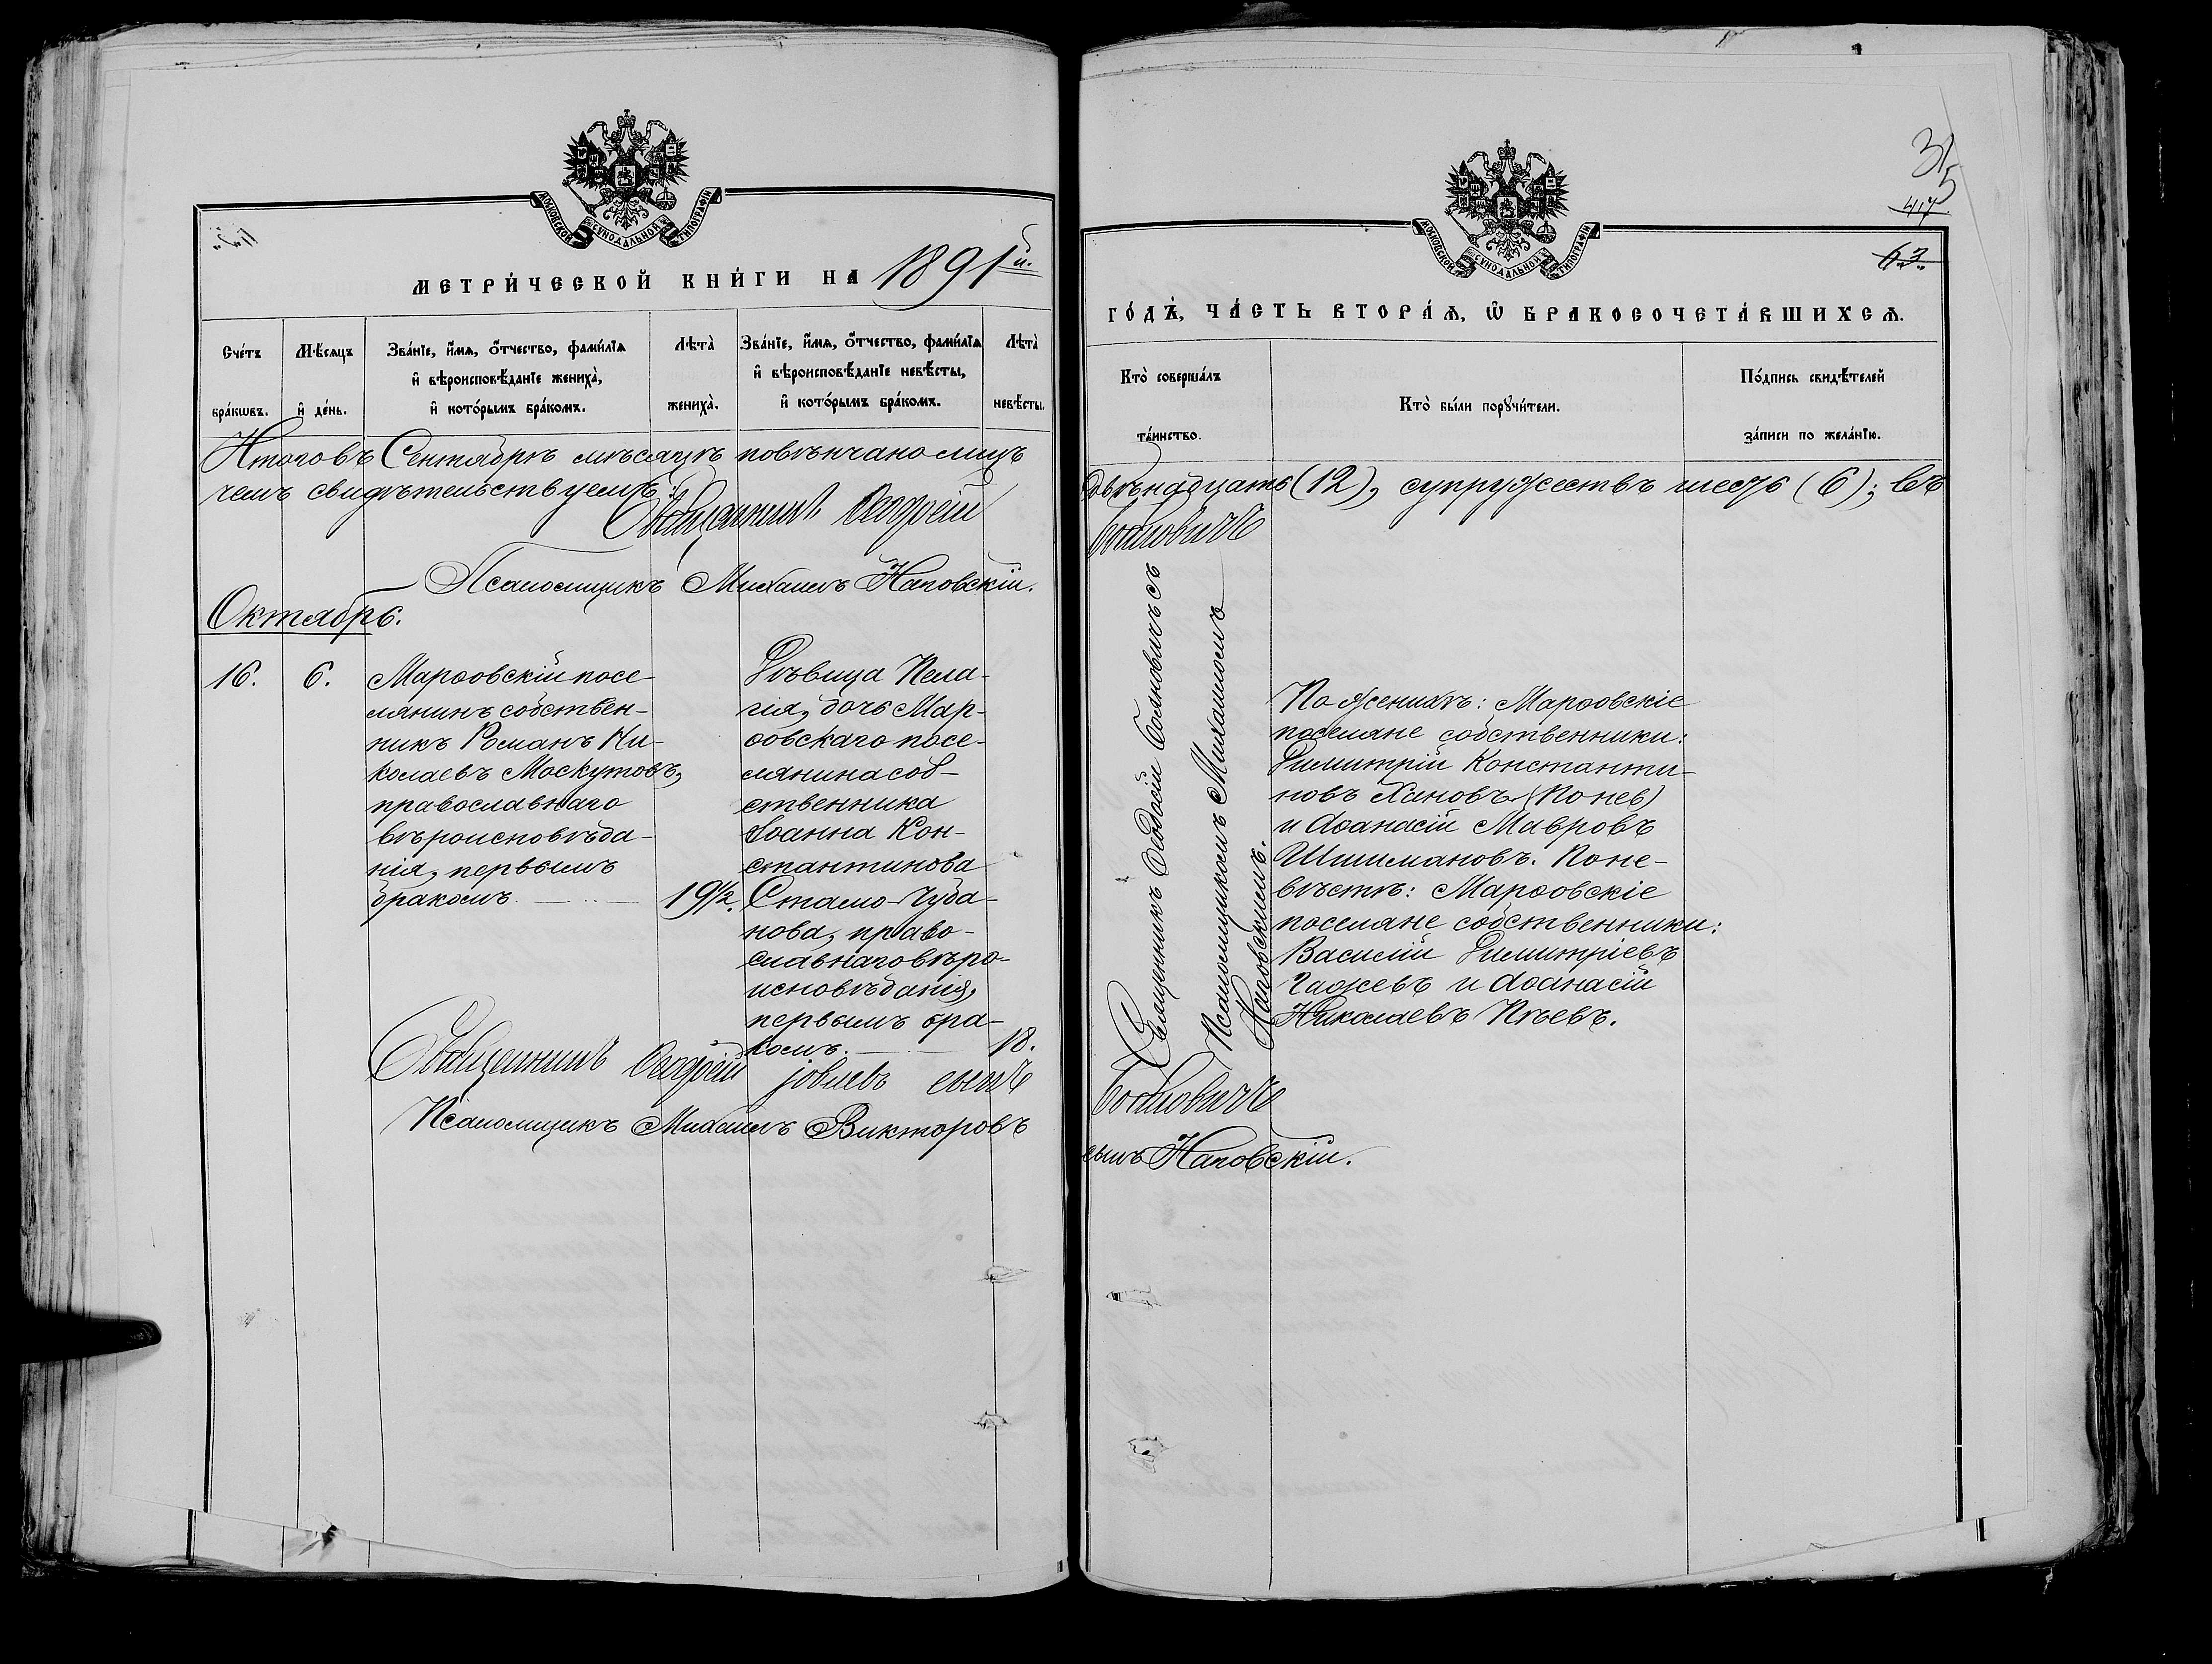 МОСКОВСКОЙ СУНОДАЛЬНОЙ ТИПОГРАФІИ
МЕТРИ́ЧЕСКОЙ КНИ́ГИ НА 1891й.
Сче́тъ бра́кѡвъ.
Мѣ́сѧцъ и҆ де́нь.
Зва́нїе, и҆́мѧ, ѻ҆́тчество, фами́лїѧ
и҆ вѣроисповѣ́данїе жениха̀,
и҆ кото́рымъ бра́комъ.
Лѣта̀ жениха̀.
Зва́нїе, и҆́мѧ, ѻ҆́тчество, фами́лїѧ
и҆ вѣроисповѣ́данїе невѣ́сты,
и҆ кото́рымъ бра́комъ.
Лѣта̀ невѣ́сты.
Итого въ Сентябрѣ мѣсяцѣ повѣнчано лицъ
чемъ свидѣтельствуемъ:
Священникъ Ѳеодосій
Псаломщикъ Михаилъ Наповскій.
Октябрь.
16.
6.
Марѳовскій посе-
лянинъ собствен-
никъ Романъ Ни-
колаевъ Москутовъ,
православнаго
вѣроисповѣда-
нія, первымъ
бракомъ.
19½.
Дѣвица Пела-
гія, дочь Мар-
ѳовскаго посе-
лянина соб-
ственника
Іоанна Кон-
стантинова
Стамо-Чуба-
нова, право-
славнаго вѣро-
исповѣданія,
первымъ бра-
комъ.
18.
Священникъ Ѳеодосій Іовлевъ сынъ
Псаломщикъ Михаилъ Викторовъ
315
417
63
МОСКОВСКОЙ СУНОДАЛЬНОЙ ТИПОГРАФІИ
ГО́ДЪ, ЧА́СТЬ ВТОРА́Ѧ, Ѡ҆ БРАКОСОЧЕТА́ВШИХСѦ.
Кто̀ соверша́лъ
та́инство.
Кто̀ бы́ли порꙋчи́тели.
По́дпись свидѣ́телей
за́писи по жела́нїю.
двѣнадцать (12), супружествъ шесть (6); въ
Бояновичъ
Священникъ Ѳеодосій Бояновичъ съ
Псаломщикомъ Михаиломъ
Наповскимъ.
По женихѣ: Марѳовскіе
поселяне собственники:
Димитрій Константи-
новъ Хановъ (Понев)
и Аѳанасій Мавровъ
Шишмановъ. По не-
вѣстѣ: Марѳовскіе
поселяне собственники:
Василій Димитріевъ
Гаджевъ и Аѳанасій
Николаевъ Пѣевъ.
Бояновичъ
сынъ Наповскій.